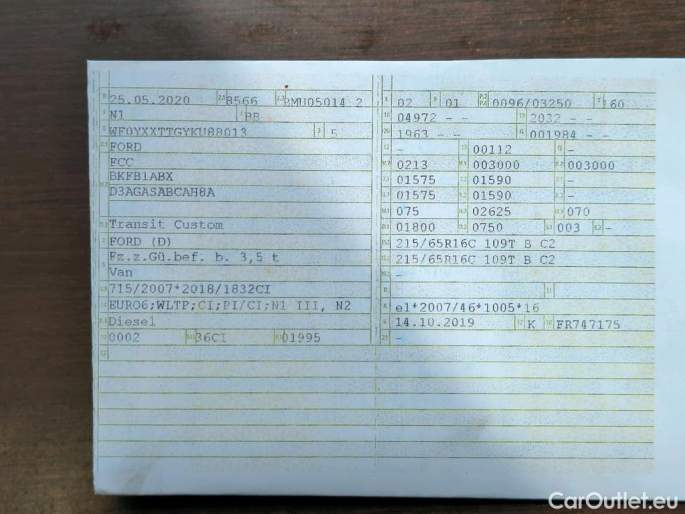 25.05.2020 8566 BMU05014 2
N1 BB
WF0YXXTTGYKU88013 5
FORD
FCC
BKFB1ABX
D3AGASABCAH8A
Transit Custom
FORD (D)
Fz.z.Gü.bef. b. 3,5 t
Van
715/2007*2018/1832CI
EURO6;WLTP;CI;PI/CI;N1 III, N2
Diesel
0002 36CI 01995
02 01 0096/03250 160
04972 – – 2032 – –
1963 – – 001984 – –
– 00112 –
0213 003000 003000
01575 01590 –
01575 01590 –
075 02625 070
01800 0750 003 –
215/65R16C 109T B C2
215/65R16C 109T B C2
–
e1*2007/46*1005*16
14.10.2019 K FR747175
–
CarOutlet.eu